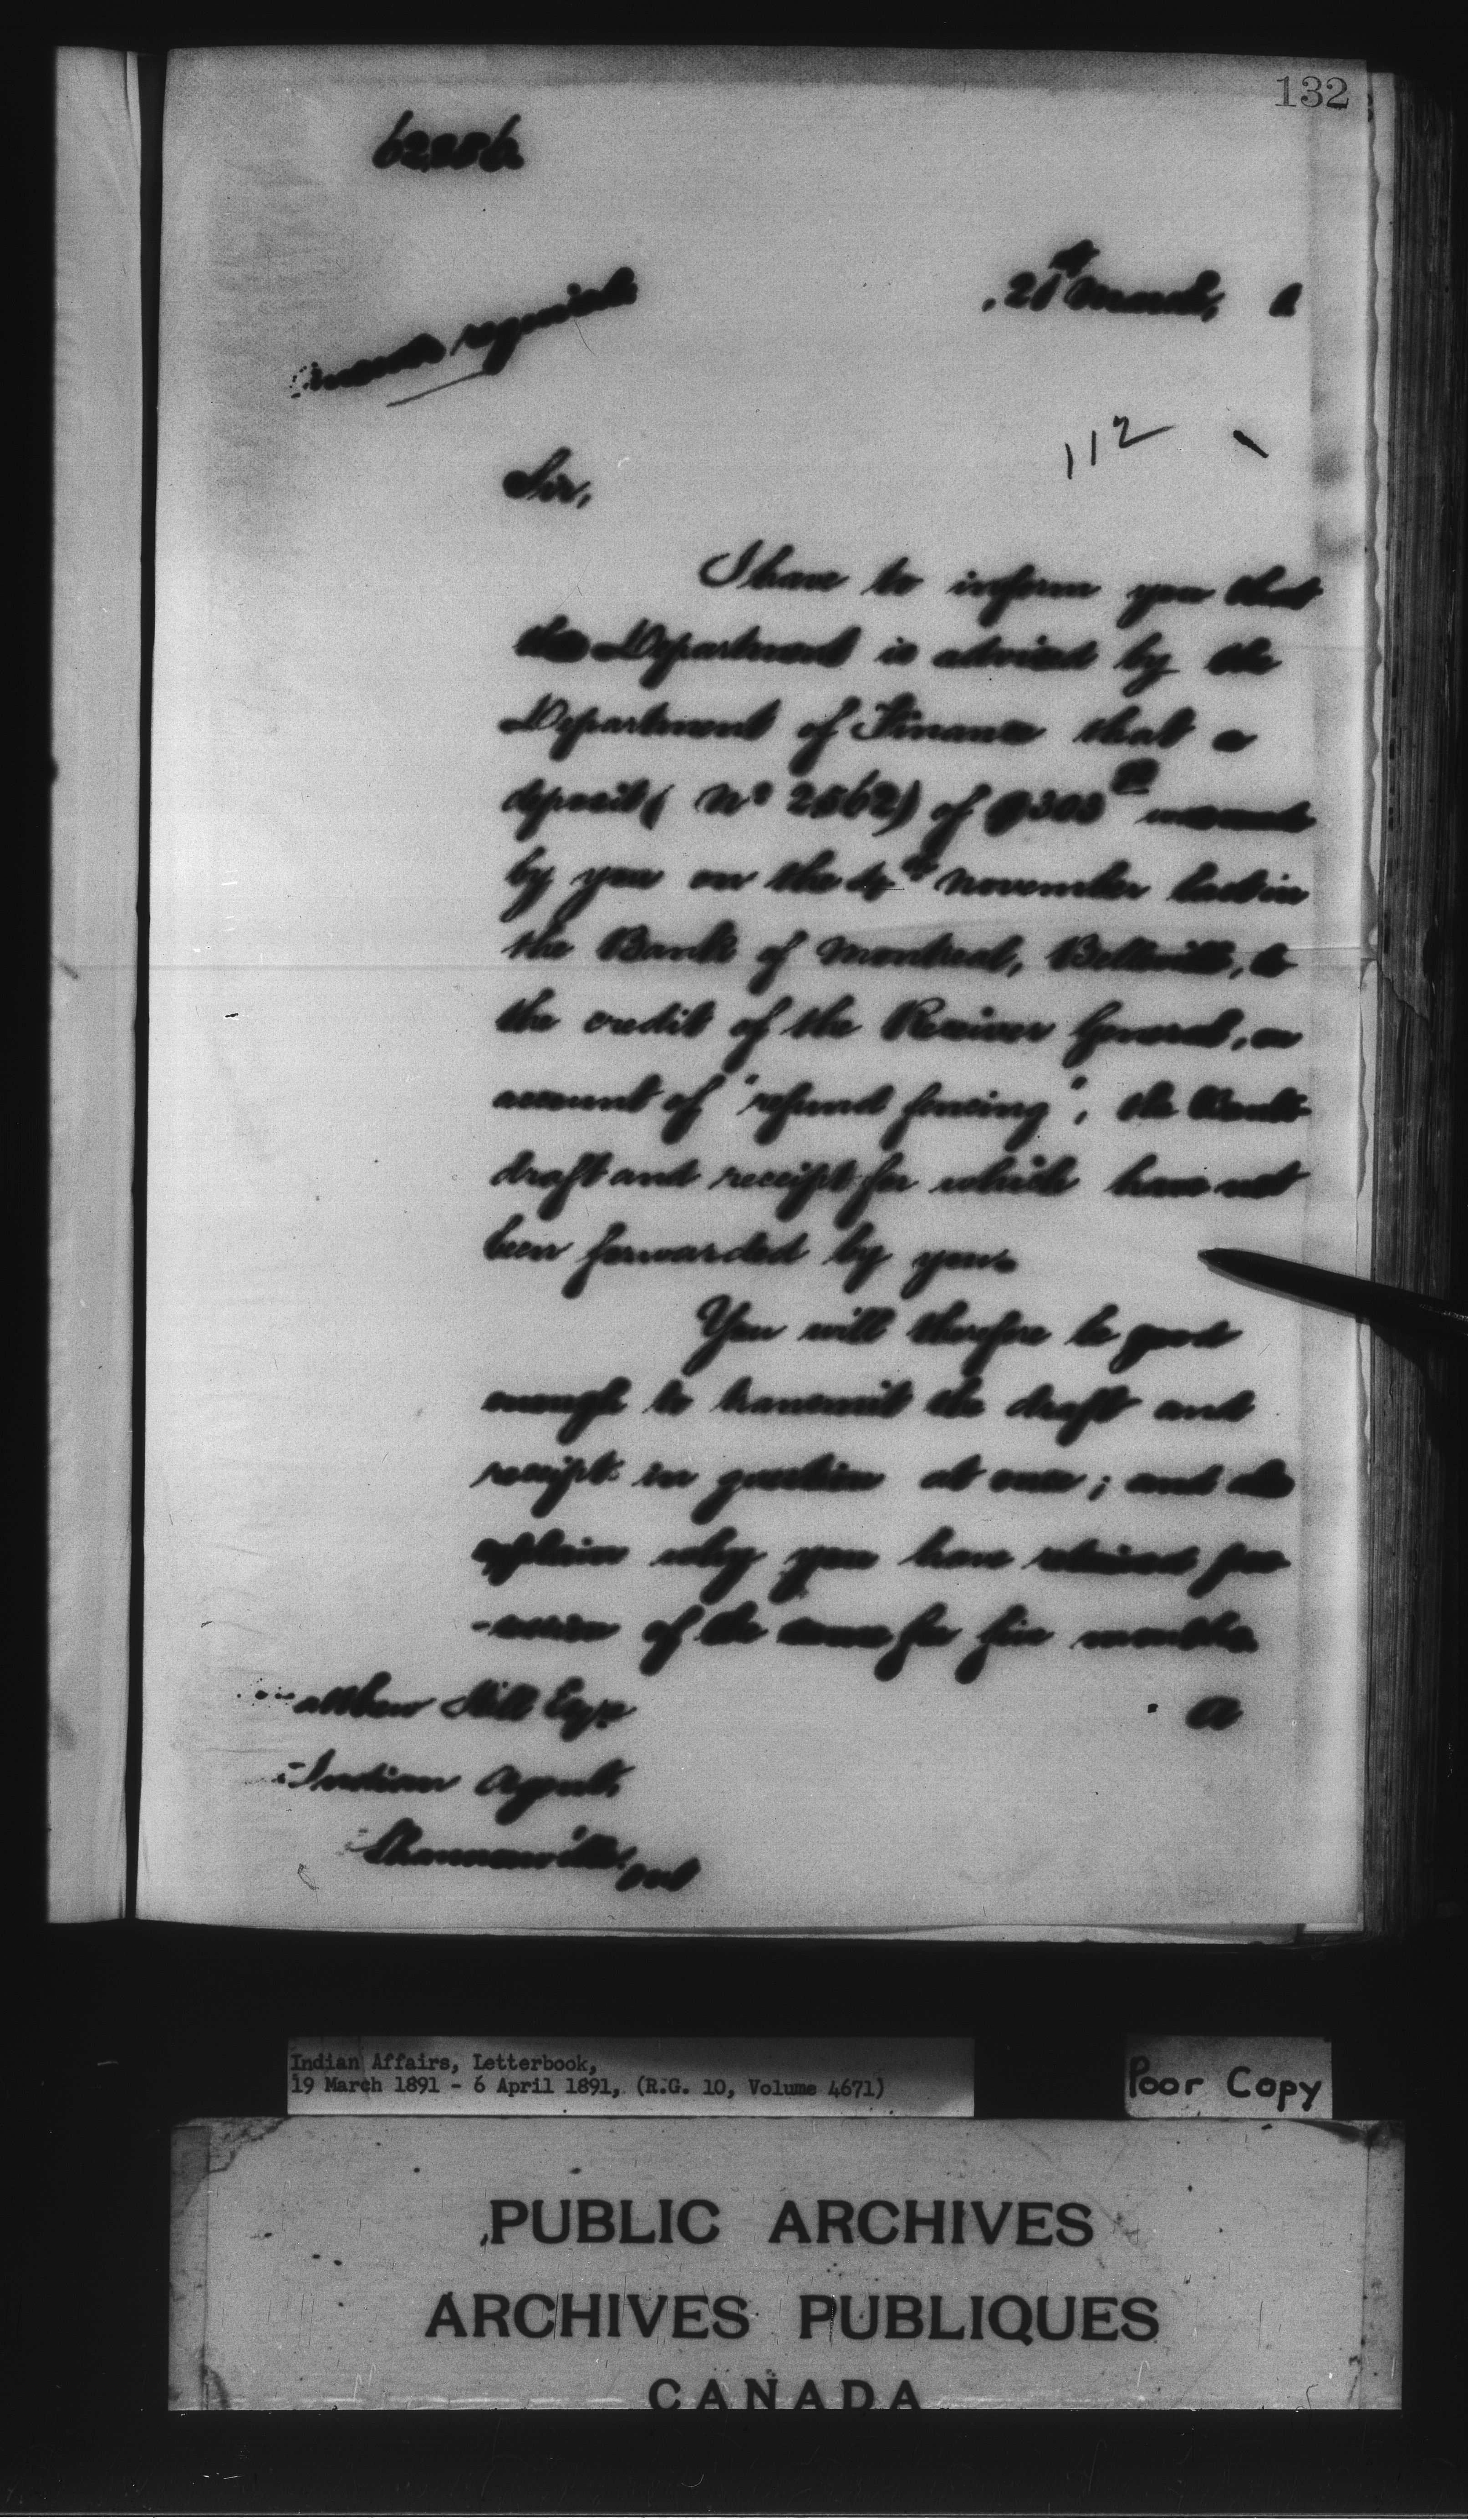 132
Sir,
112
I have to inform you that
the Department is advised by the
Department of Finance that a
deposit (No 2562) of $303
by you on the 4th November last in
the Bank of Montreal, Belleville, to
the credit of the Receiver General, on
account of "refund fencing", the Bank
draft and receipt for which have not
been forwarded by you.
You will therefore be good
enough to transmit the draft and
receipt in question at once; and
explain why you have retained pos-
-session of the same for five months.
atthew Hill Esqre
Indian Agent,
Shannonville, Ont
Indian Affairs, Letterbook,
19 March 1891 - 6 April 1891, (R.G. 10, Volume 4671)
Poor Copy
PUBLIC ARCHIVES
ARCHIVES PUBLIQUES
CANADA